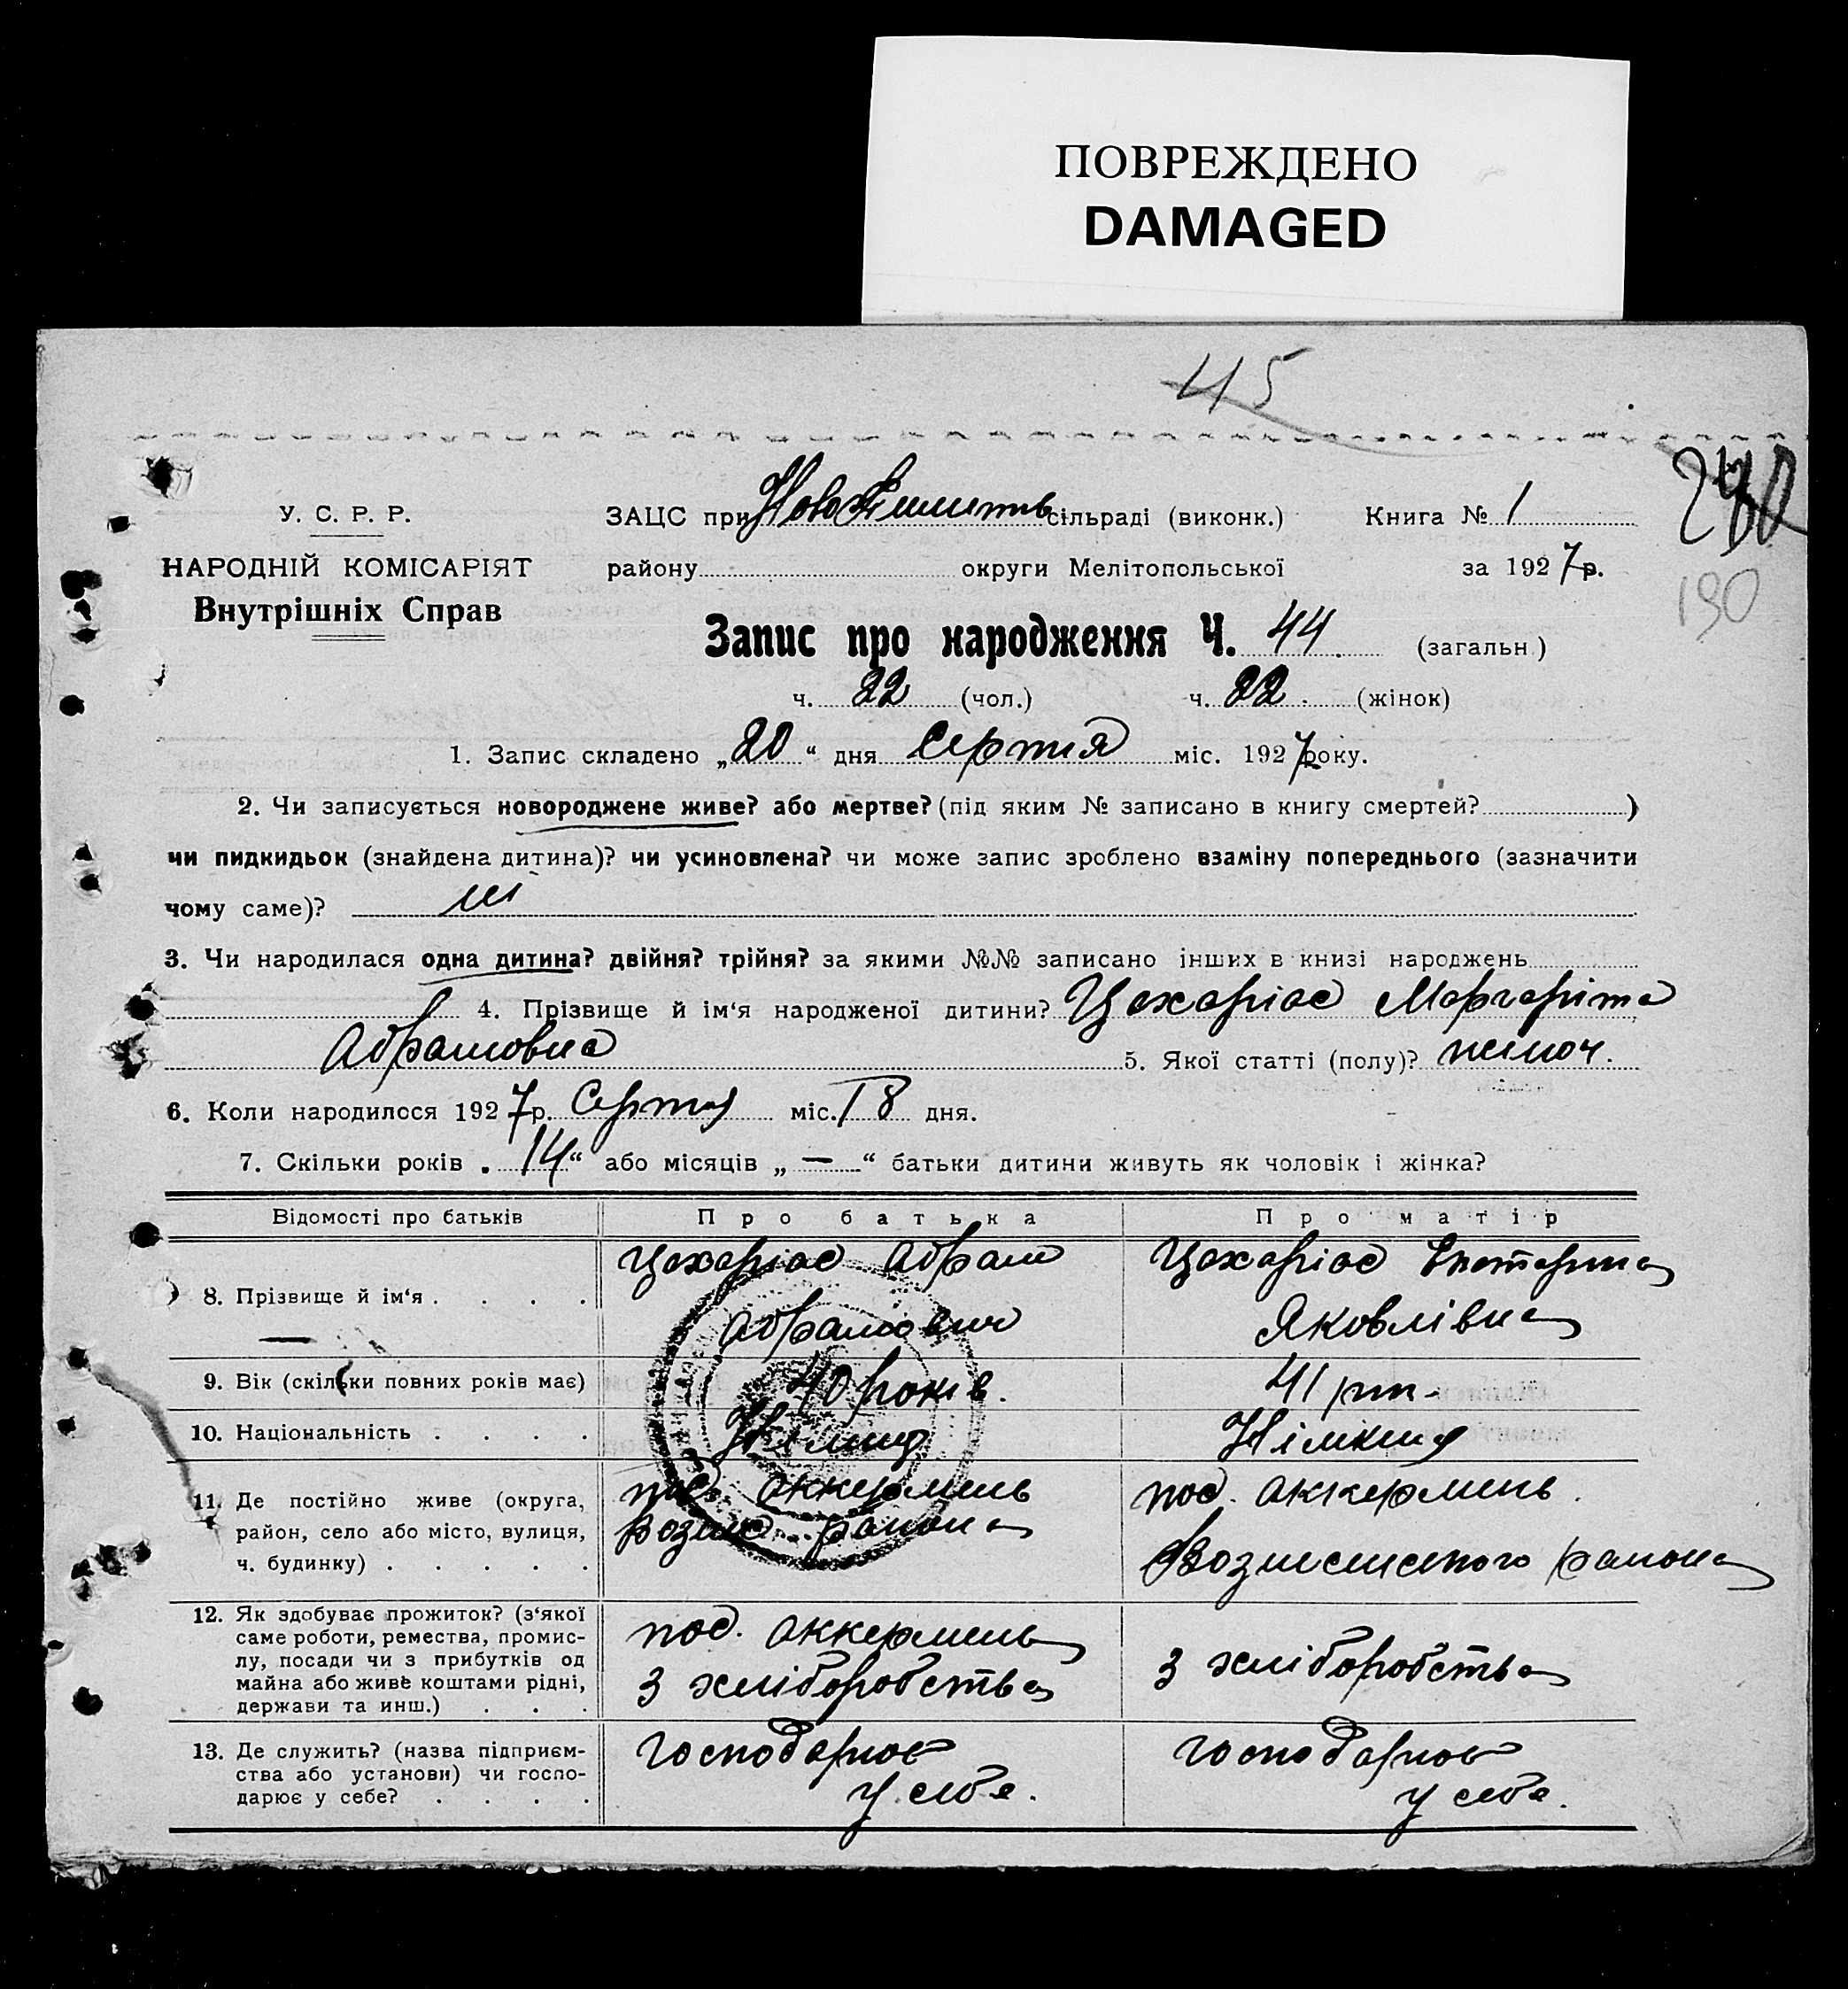 ПОВРЕЖДЕНО
DAMAGED
45
У. С. Р. Р.
ЗАЦС при сільраді (виконк.) Книга № 1
190
НАРОДНІЙ КОМІСАРІЯТ
району округи Мелітопольської за 1927 р.
Внутрішніх Справ
Запис про народження Ч. 44. (загальн.)
ч. 22 (чол.) ч. 22. (жінок)
1. Запис складено „20“ дня Серпня міс. 1927 року.
2. Чи записується новороджене живе? або мертве? (під яким № записано в книгу смертей? )
чи пидкидьок (знайдена дитина)? чи усиновлена? чи може запис зроблено взаміну попереднього (зазначити
чому саме)? ні
3. Чи народилася одна дитина? двійня? трійня? за якими №№ записано інших в книзі народжень
4. Прізвище й ім‘я народженої дитини? Цахаріас Маргаріта
Абрамовна 5. Якої статті (полу)? жіноч.
6. Коли народилося 1927 р. Серпня міс. 18 дня.
7. Скільки років „14“ або місяців „—“ батьки дитини живуть як чоловік і жінка?
Відомості про батьків Про батька Про матір
8. Прізвище й ім‘я . . . . Цахаріас Абрам Цахаріас Екатерина
Абрамович Яковлівна
9. Вік (скільки повних років має) 40 років. 41 рік
10. Національність . . . . Німець Німкиня
11. Де постійно живе (округа, пос. Аккермень пос. Аккермень.
район, село або місто, вулиця, Возне района Вознесенского района
ч. будинку) . . . . .
12. Як здобуває прожиток? (з‘якої
саме роботи, ремества, промис- пос. Аккермень
лу, посади чи з прибутків од з хліборобства з хліборобства
майна або живе коштами рідні,
держави та инш.) . . .
13. Де служить? (назва підприєм- господарює господарює
ства або установи) чи госпо- у себе. у себе.
дарює у себе? . . . .